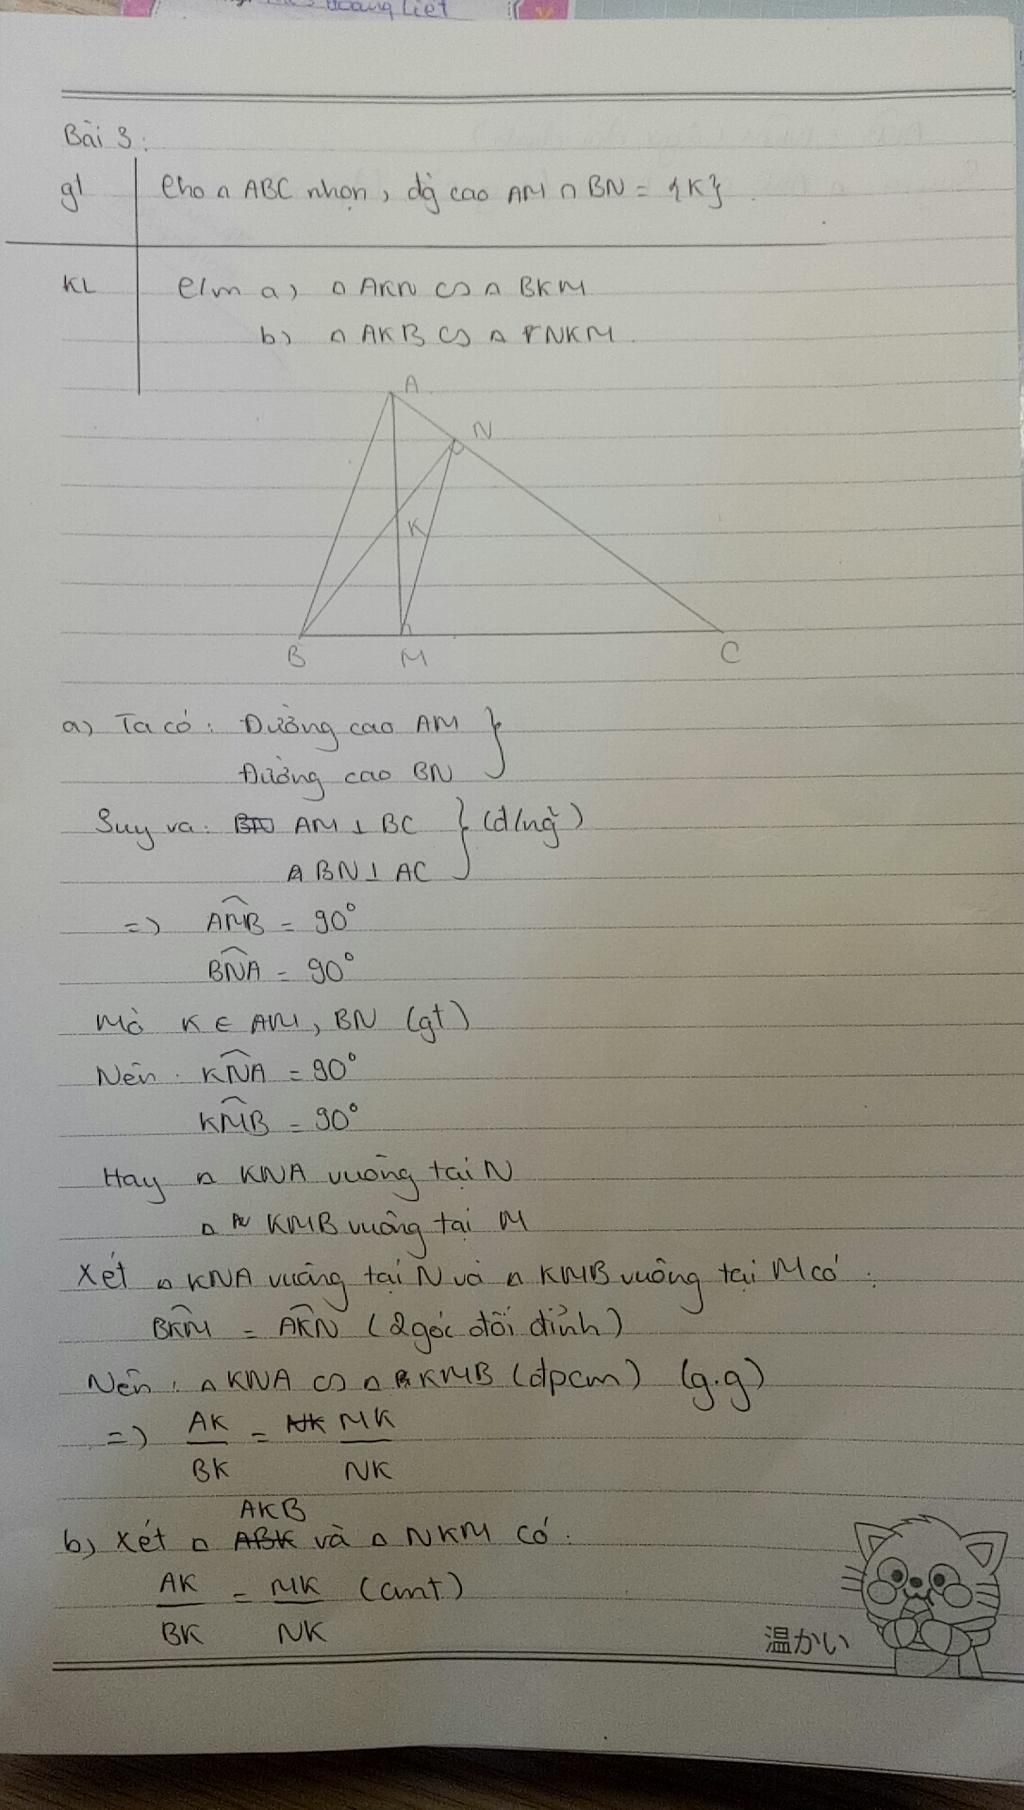 Hoàng Liệt
Bài 3:
gt Cho △ ABC nhọn, đg cao AM ∩ BN = {K}
KL C/m a) △ AKN ∽ △ BKM
b) △ AKB ∽ △ NKM.
A
N
K
B M C
a) Ta có: Đường cao AM }
Đường cao BN
Suy ra: AM ⊥ BC } (đ/ng)
BN ⊥ AC
=> AMB = 90°
BNA = 90°
Mà K ∈ AM, BN (gt)
Nên: KNA = 90°
KMB = 90°
Hay △ KNA vuông tại N
△ KMB vuông tại M
Xét △ KNA vuông tại N và △ KMB vuông tại M có:
BKM = AKN (2 góc đối đỉnh)
Nên: △ KNA ∽ △ KMB (đpcm) (g.g)
=> AK/BK = MK/NK
b) Xét △ AKB và △ NKM có:
AK/BK = MK/NK (cmt)
温かい